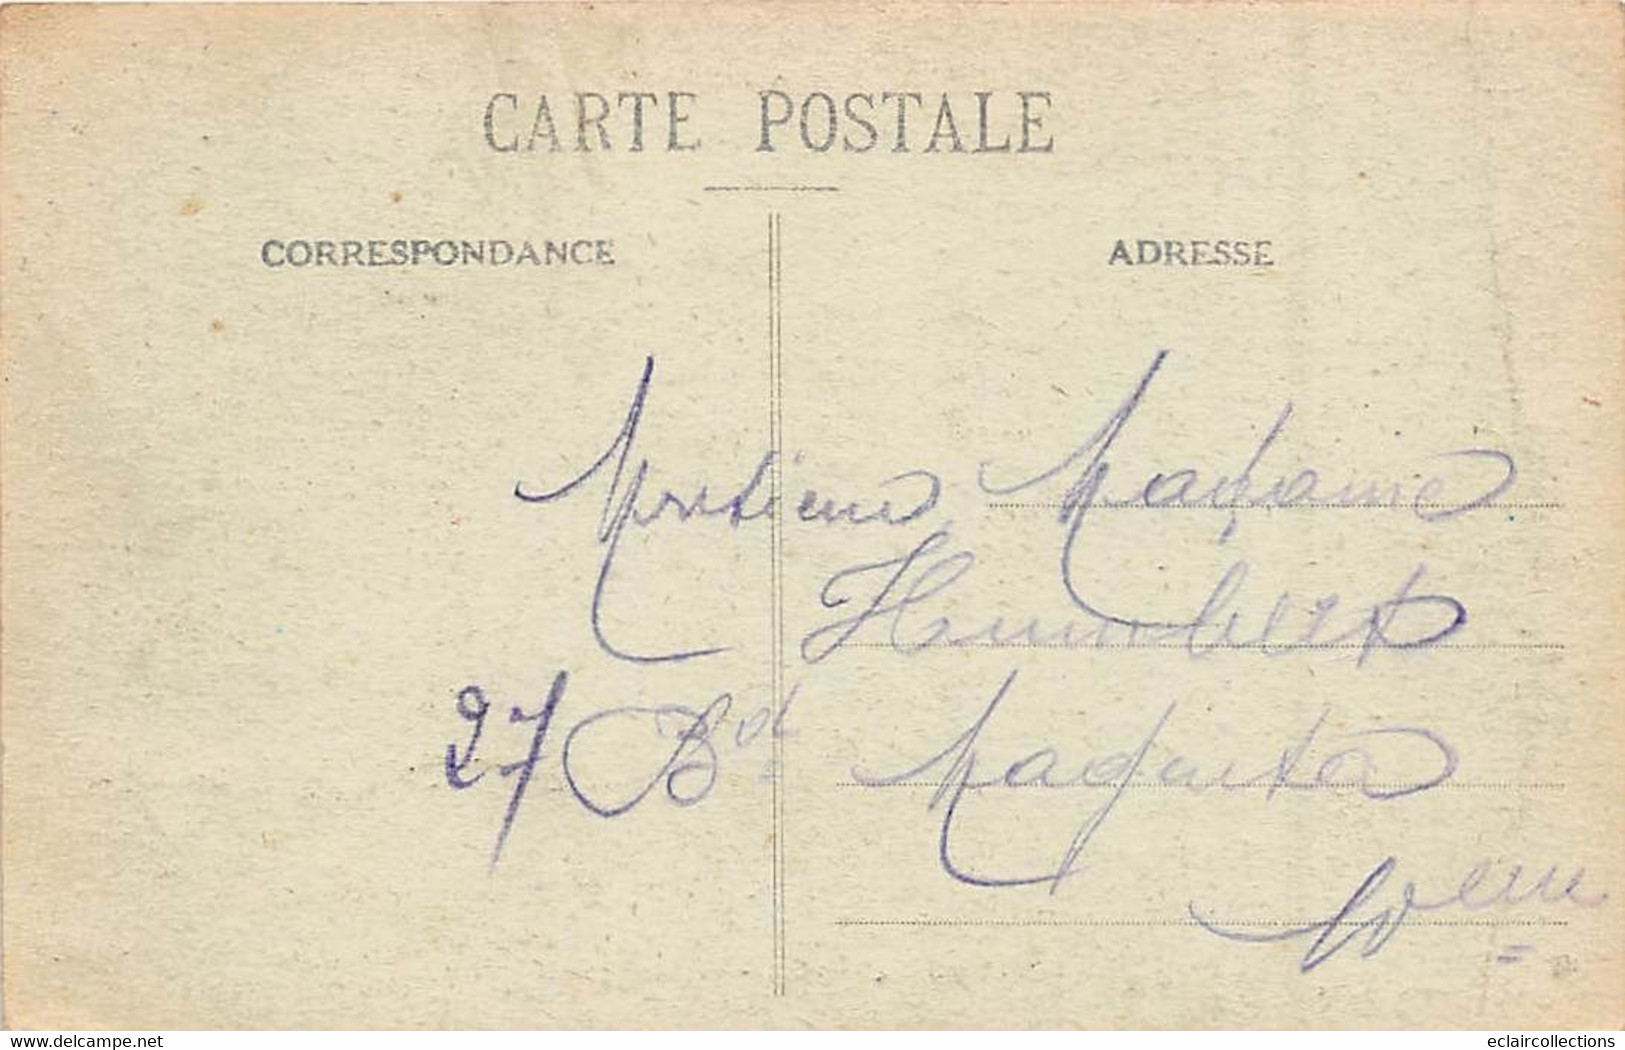 CARTE POSTALE
CORRESPONDANCE
ADRESSE
Monsieur Madame
Humbert
27 Bd Magenta
Delcampe.net
eclaircollections